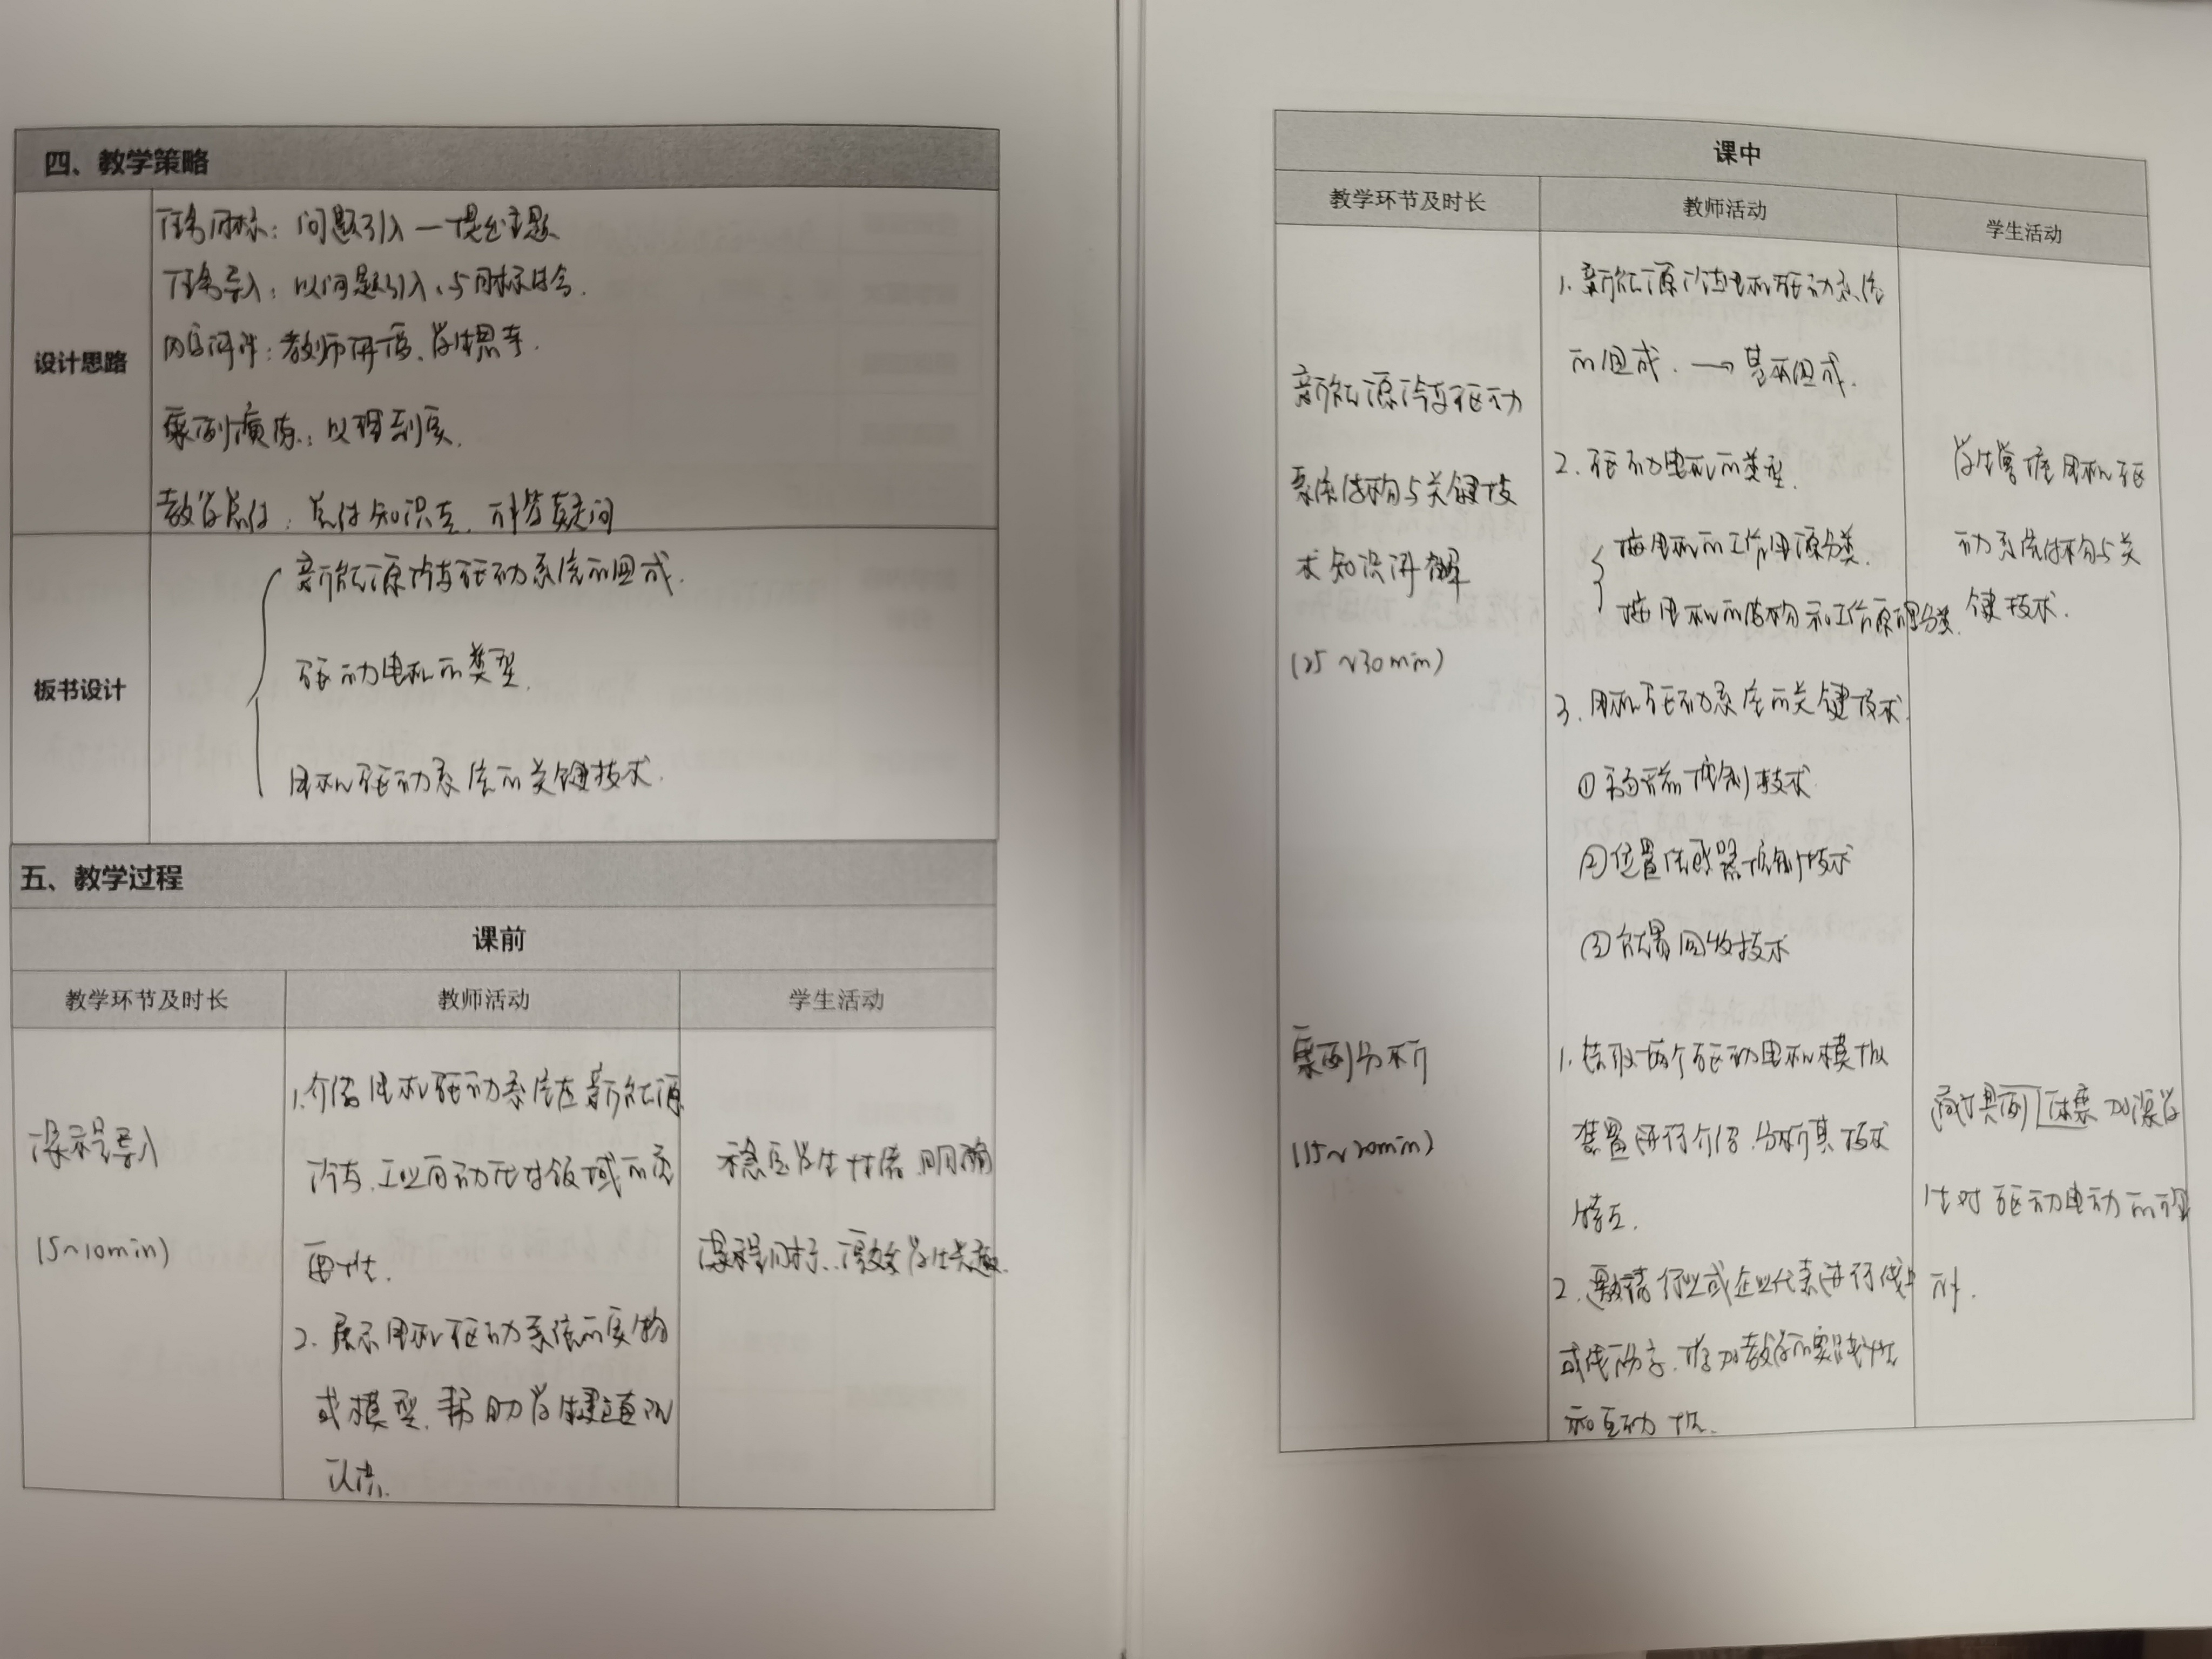 四、教学策略
设计思路
任务目标：问题引入—提出主题
任务导入：以问题引入、与目标结合.
内容讲述：教师讲授、学生思考.
案例演练：以理到实.
教学总结：总结知识点、解答疑问
板书设计
新能源汽车驱动系统的组成.
驱动电机的类型.
电机驱动系统的关键技术.
五、教学过程
课前
教学环节及时长 教师活动 学生活动
课程导入
(5~10min)
1.介绍电机驱动系统在新能源
汽车、工业自动化等领域的重
要性.
2.展示电机驱动系统的实物
或模型,帮助学生建立直观
认识.
稳定学生情绪,明确
课程目标、激发学生兴趣.
课中
教学环节及时长 教师活动 学生活动
新能源汽车驱动
系统结构与关键技
术知识讲解
(25~30min)
1.新能源汽车电机驱动系统
的组成.→基本组成.
2.驱动电机的类型.
按电机的工作电源分类.
按电机的结构和工作原理分类.
3.电机驱动系统的关键技术.
①控制技术
②位置传感器控制技术
③能量回收技术
学生掌握电机驱
动系统结构与关
键技术.
案例分析
(15~20min)
1.选取一两个驱动电机模拟
装置进行介绍,分析其技术
特点.
2.邀请行业或企业代表进行线上
或线下分享,增加教学的实践性
和互动性.
通过具例 加深学
生对驱动电动的理
解.